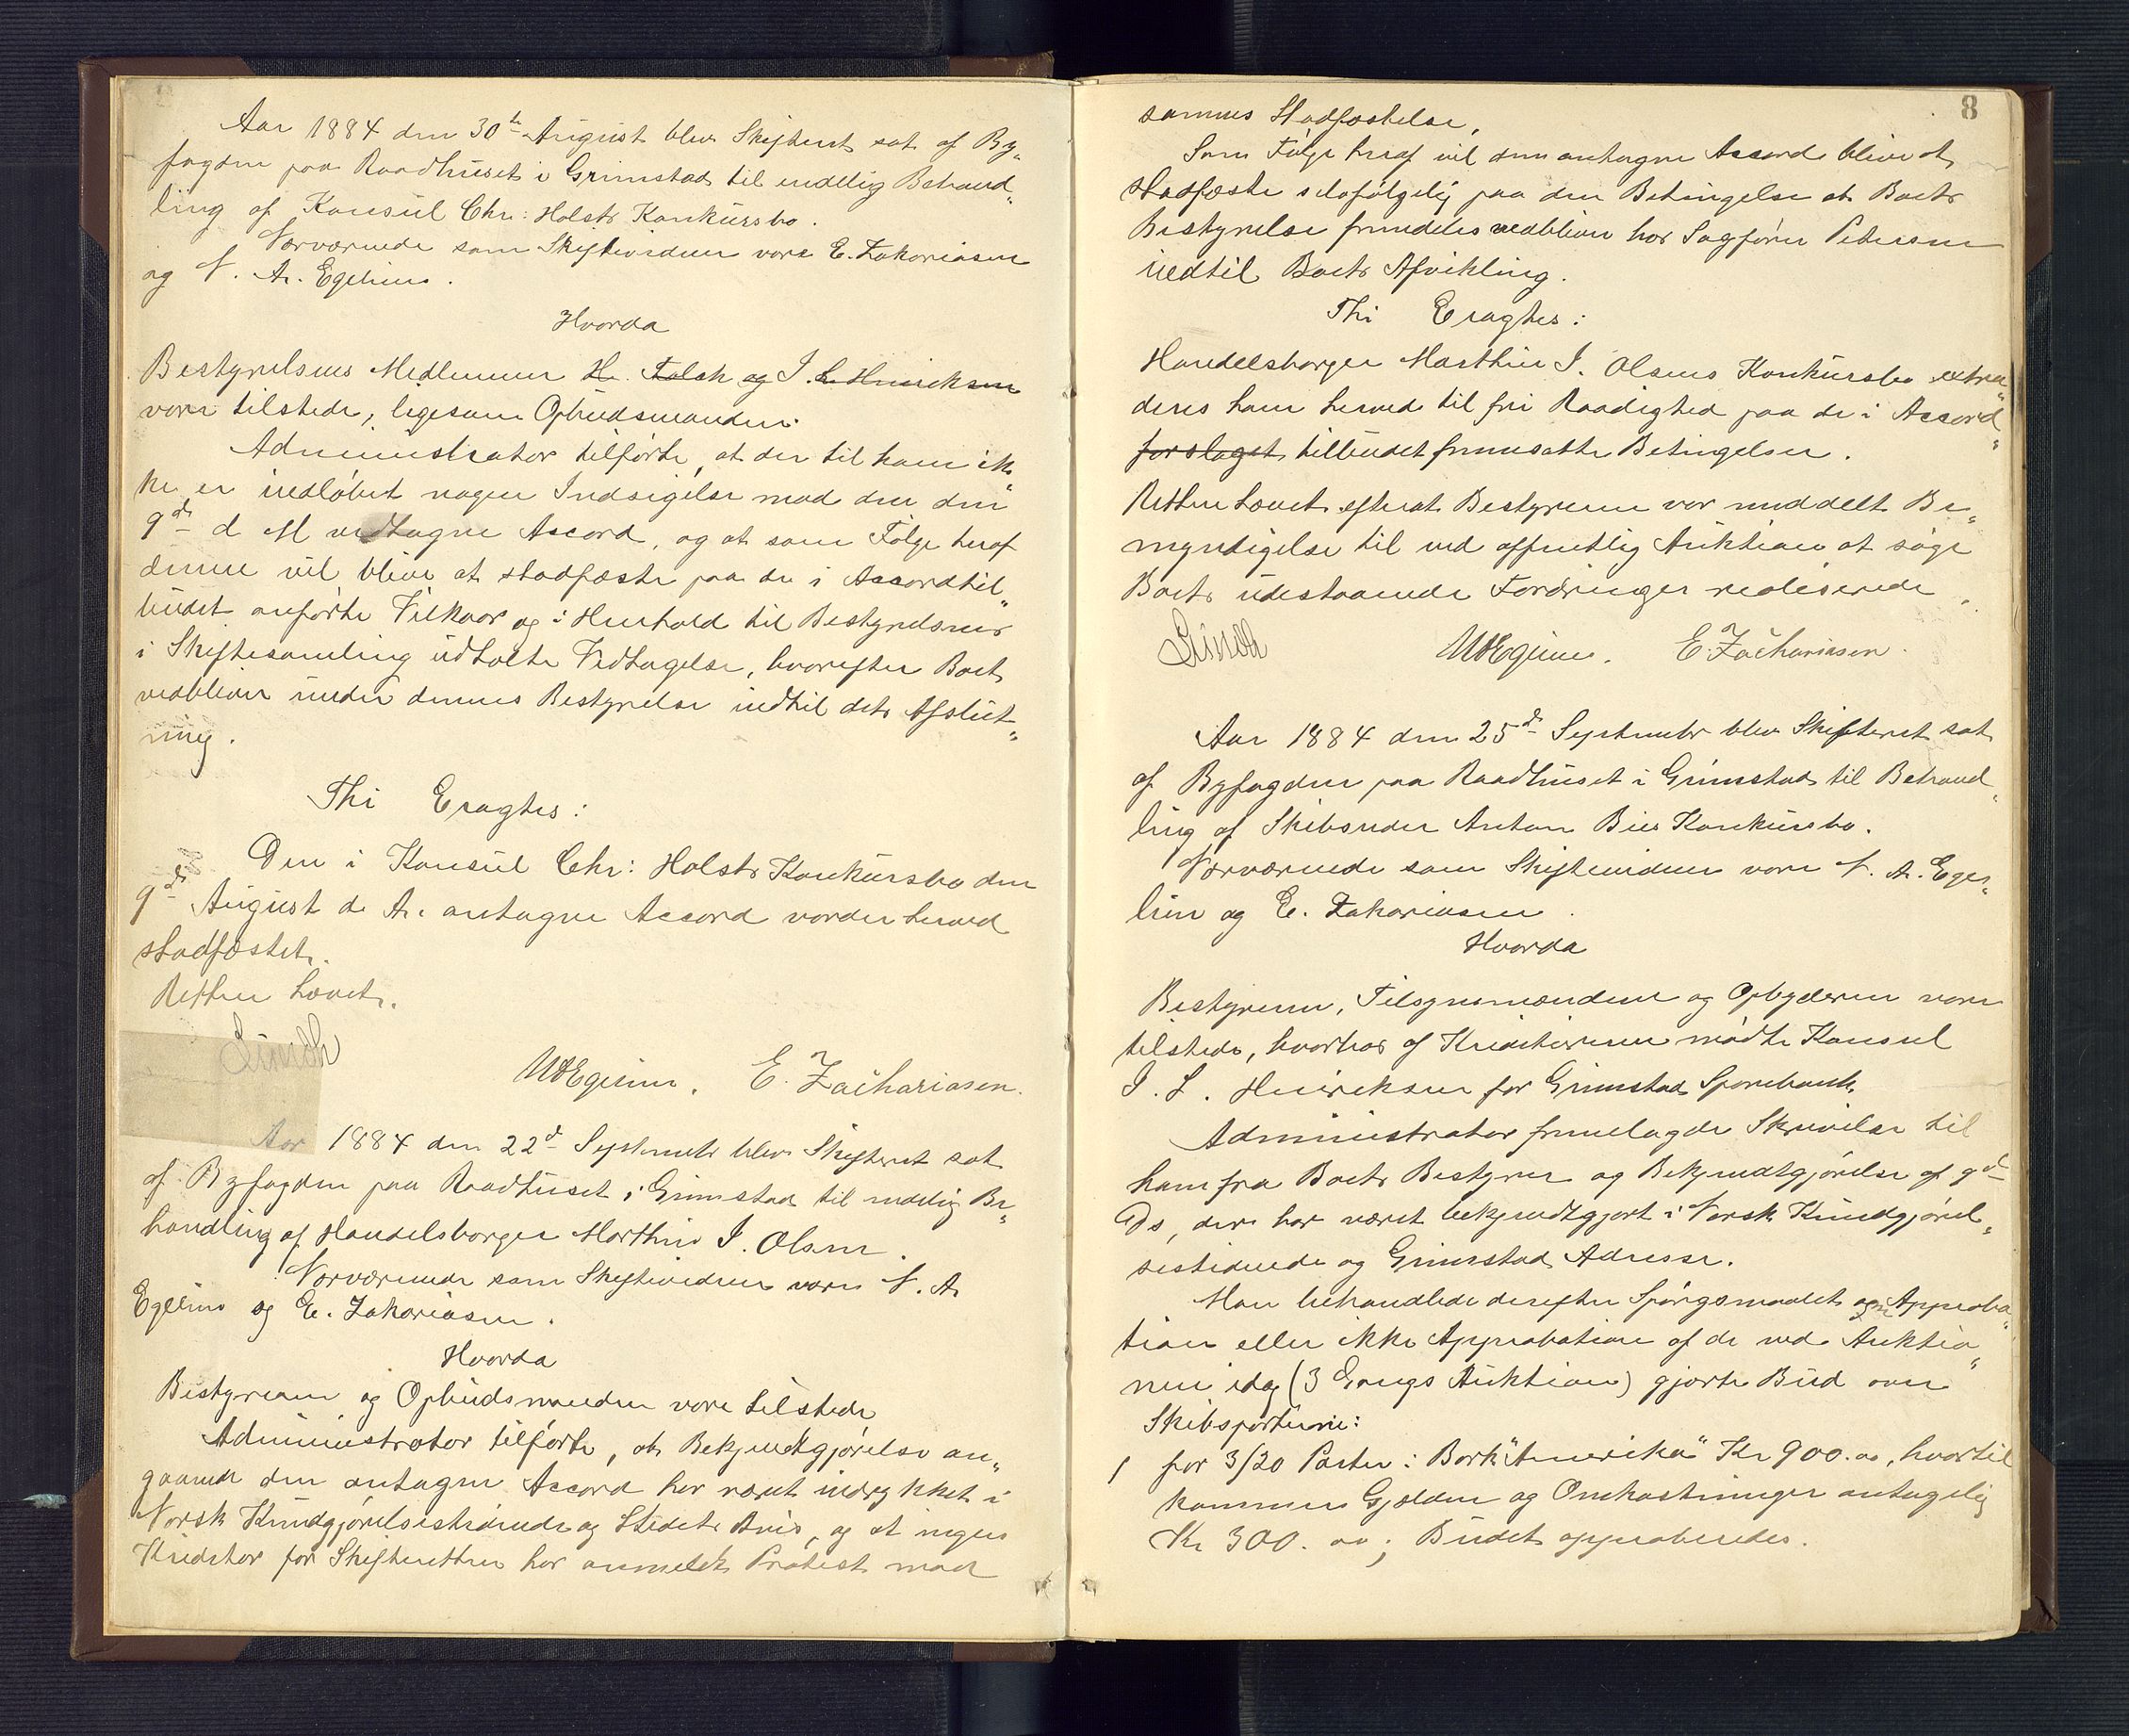 Aar 1884 den 30te August blev Skifteret sat af By„
fogden paa Raadhuset i Grimstad til endelig Behand„
ling af Konsul Chr: Holsts Konkursbo.
Nærværende som Skiftevidner vare E. Zakariasen
og N. A. Egelius.
Hvorda
Bestyrelsens Medlemmer H. Falck og J. L. Henriksen
vare tilstede, ligesom Opbudsmanden.
Administrator tilførte, at der til ham ik„
ke er indløbet nogen Indsigelse mod den den
9de d M vedtagne Accord, og at som Følge heraf
denne vil blive at stadfæste paa de i Accordtil„
budet anførte Vilkaar og i Henhold til Bestyrelsens
i Skiftesamling udtalte Vedtagelse, hvorefter Boet
vedbliver under dennes Bestyrelse indtil dets Afslut„
ning.
Thi Eragtes:
Den i Konsul Chr: Holsts Konkursbo den
9de August d. A. antagne Accord vorder herved
stadfæstet.
Retten hævet.
E. Zachariasen.
Aar 1884 den 22d September blev Skifteret sat
af Byfogden paa Raadhuset i Grimstad til endelig Be„
handling af Handelsborger Marthin J. Olsen.
Nærværende som Skiftevidner vare N. A.
Egelius og E. Zakariasen.
Hvorda
Bestyreren og Opbudsmanden vare tilstede
Administrator tilførte, at Bekjendtgjørelse an„
gaaende den antagne Accord har været indrykket i
Norsk Kundgjørelsestidende og Stedets Avis, og at ingen
Kreditor for Skifteretten har anmeldt Protest mod
8
sammes Stadfæstelse,
Som Følge heraf vil den antagne Accord blive at
stadfæste selvfølgelig paa den Betingelse at Boets
Bestyrelse fremdeles vedbliver hos Sagfører Petersen
indtil Boets Afvikling.
Thi Eragtes:
Handelsborger Marthin J. Olsens Konkursbo extra„
deres ham herved til fri Raadighed paa de i Accord„
forslaget tilbudet fremsatte Betingelser.
Retten hævet efterat Bestyreren var meddelt Be„
myndigelse til ved offentlig Auktion at søge
Boets udestaaende Fordringer realiserede.
E. Zachariasen.
Aar 1884 den 25de September blev Skifteret sat
af Byfogden paa Raadhuset i Grimstad til Behand„
ling af Skibsreder Anton Bies Konkursbo.
Nærværende som Skiftevidner vare N. A. Ege„
lius og E. Zakariasen.
Hvorda
Bestyreren, Tilsynsmændene og Opbyderen vare
tilstede, hvorhos af Kreditorerne mødte Konsul
J. L. Henriksen for Grimstad Sparebank.
Administrator fremlagde Skrivelse til
ham fra Boets Bestyrer og Bekjendtgjørelse af 9de
Ds, der har været bekjendtgjort i Norsk Kundgjørel„
sestidende og Grimstad Adresse.
Man behandlede derefter Spørgsmaalet om Approba„
tion eller ikke Approbation af de ved Auktio„
nen idag (3 Gangs Auktion) gjorte Bud over
Skibsparterne:
1 for 3/20 Parter i Bark "Amerika" Kr 900.00, hvortil
kommer Gjælden og Omkostninger antagelig
Kr 300.00; Budet approberedes.